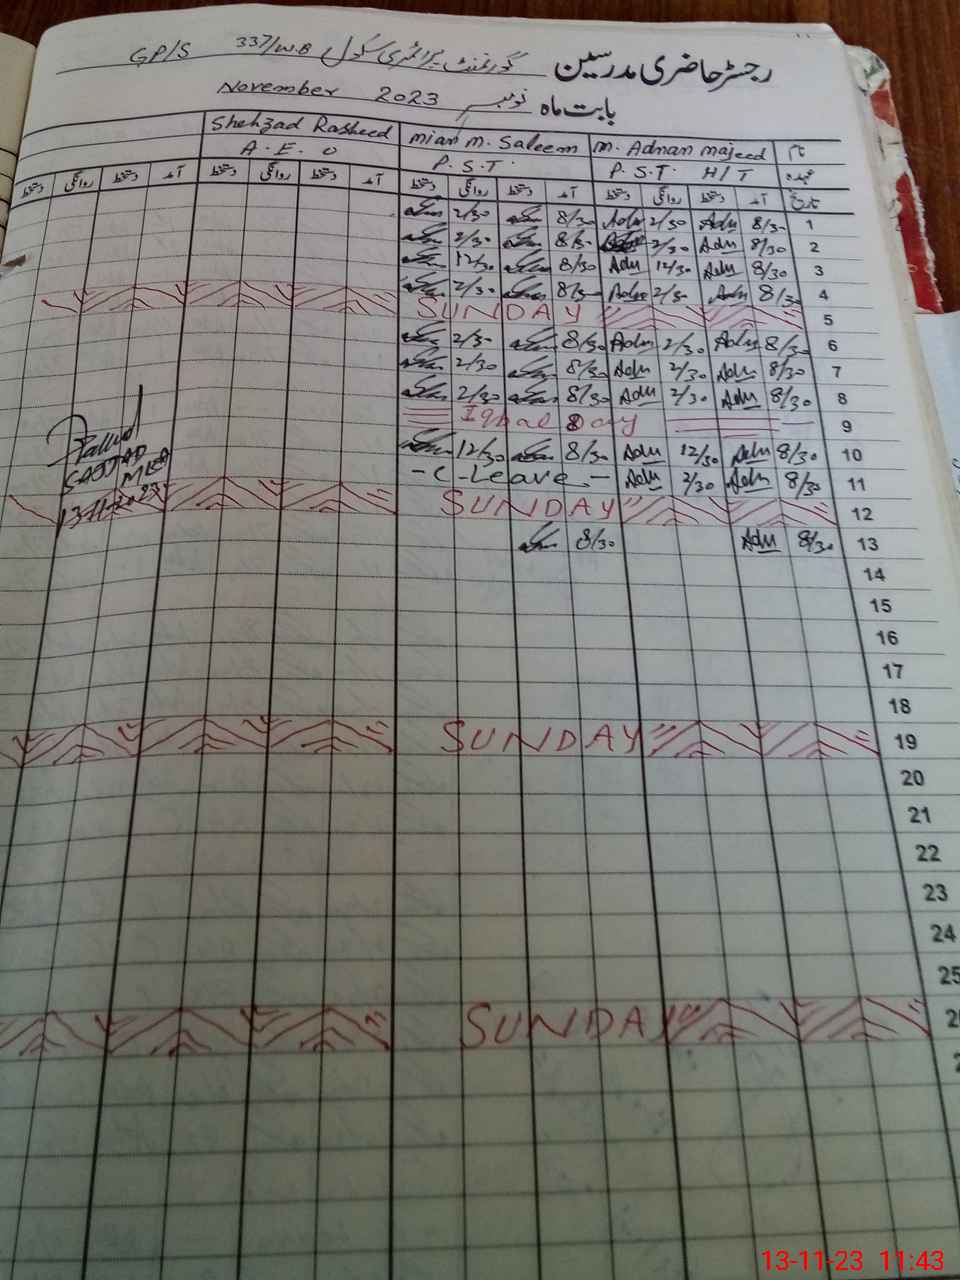 رجسٹر حاضری مدرسین گورنمنٹ پرائمری سکول 337/W.B GP/S
بابت ماہ نومبر November 2023
نام M. Adnan Majeed Mian M. Saleem Shehzad Rasheed
عہدہ P.S.T H/T P.S.T. A.E.O
تاریخ آمد دستخط روانگی دستخط آمد دستخط روانگی دستخط آمد دستخط روانگی دستخط آمد دستخط روانگی دستخط
1 8/30 Adn 2/30 Adn 8/30 2/30
2 8/30 Adn 2/30 8/30 2/30
3 8/30 Adn 12/30 Adn 8/30 12/30
4 8/30 Adn 2/30 Adn 8/30 2/30
5 SUNDAY
6 8/30 Adn 2/30 Adn 8/30 2/30
7 8/30 Adn 2/30 Adn 8/30 2/30
8 8/30 Adn 2/30 Adn 8/30 2/30
9 Iqbal Day
10 8/30 Adn 12/30 Adn 8/30 12/30
11 8/30 Adn 2/30 Adn - C-Leave -
12 SUNDAY
13 8/30 Adn 8/30
SAJJAD
MEA
13-11-2023
14
15
16
17
18
19 SUNDAY
20
21
22
23
24
25
SUNDAY
13-11-23 11:43